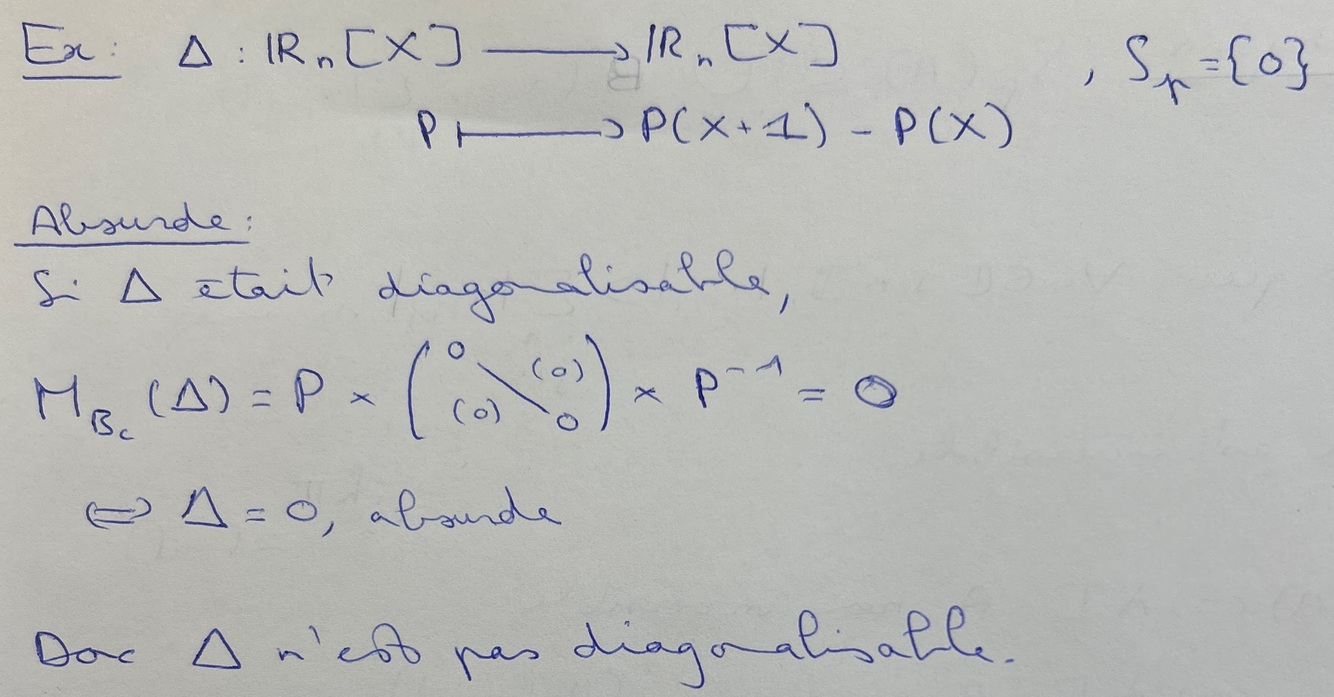 Ex: Δ : ℝₙ[X] ⟶ ℝₙ[X] , Sp = {0}
P ⟼ P(X+1) - P(X)
Absurde:
Si Δ était diagonalisable,
M_{B_c}(Δ) = P × (0 (0) (0) 0) × P⁻¹ = 0
⇔ Δ = 0, absurde
Donc Δ n'est pas diagonalisable.